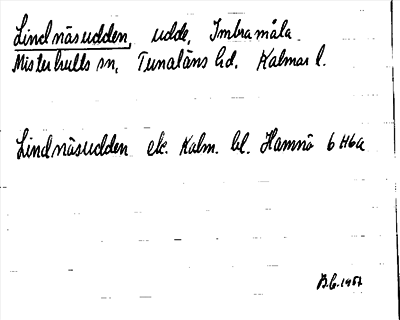 Lindnäsudden, udde, Imbramåla
Misterhults sn, Tunaläns hd. Kalmar l.
Lindnäsudden ek. Kalm. bl. Hamnö 6 H6a
B.C. 1957